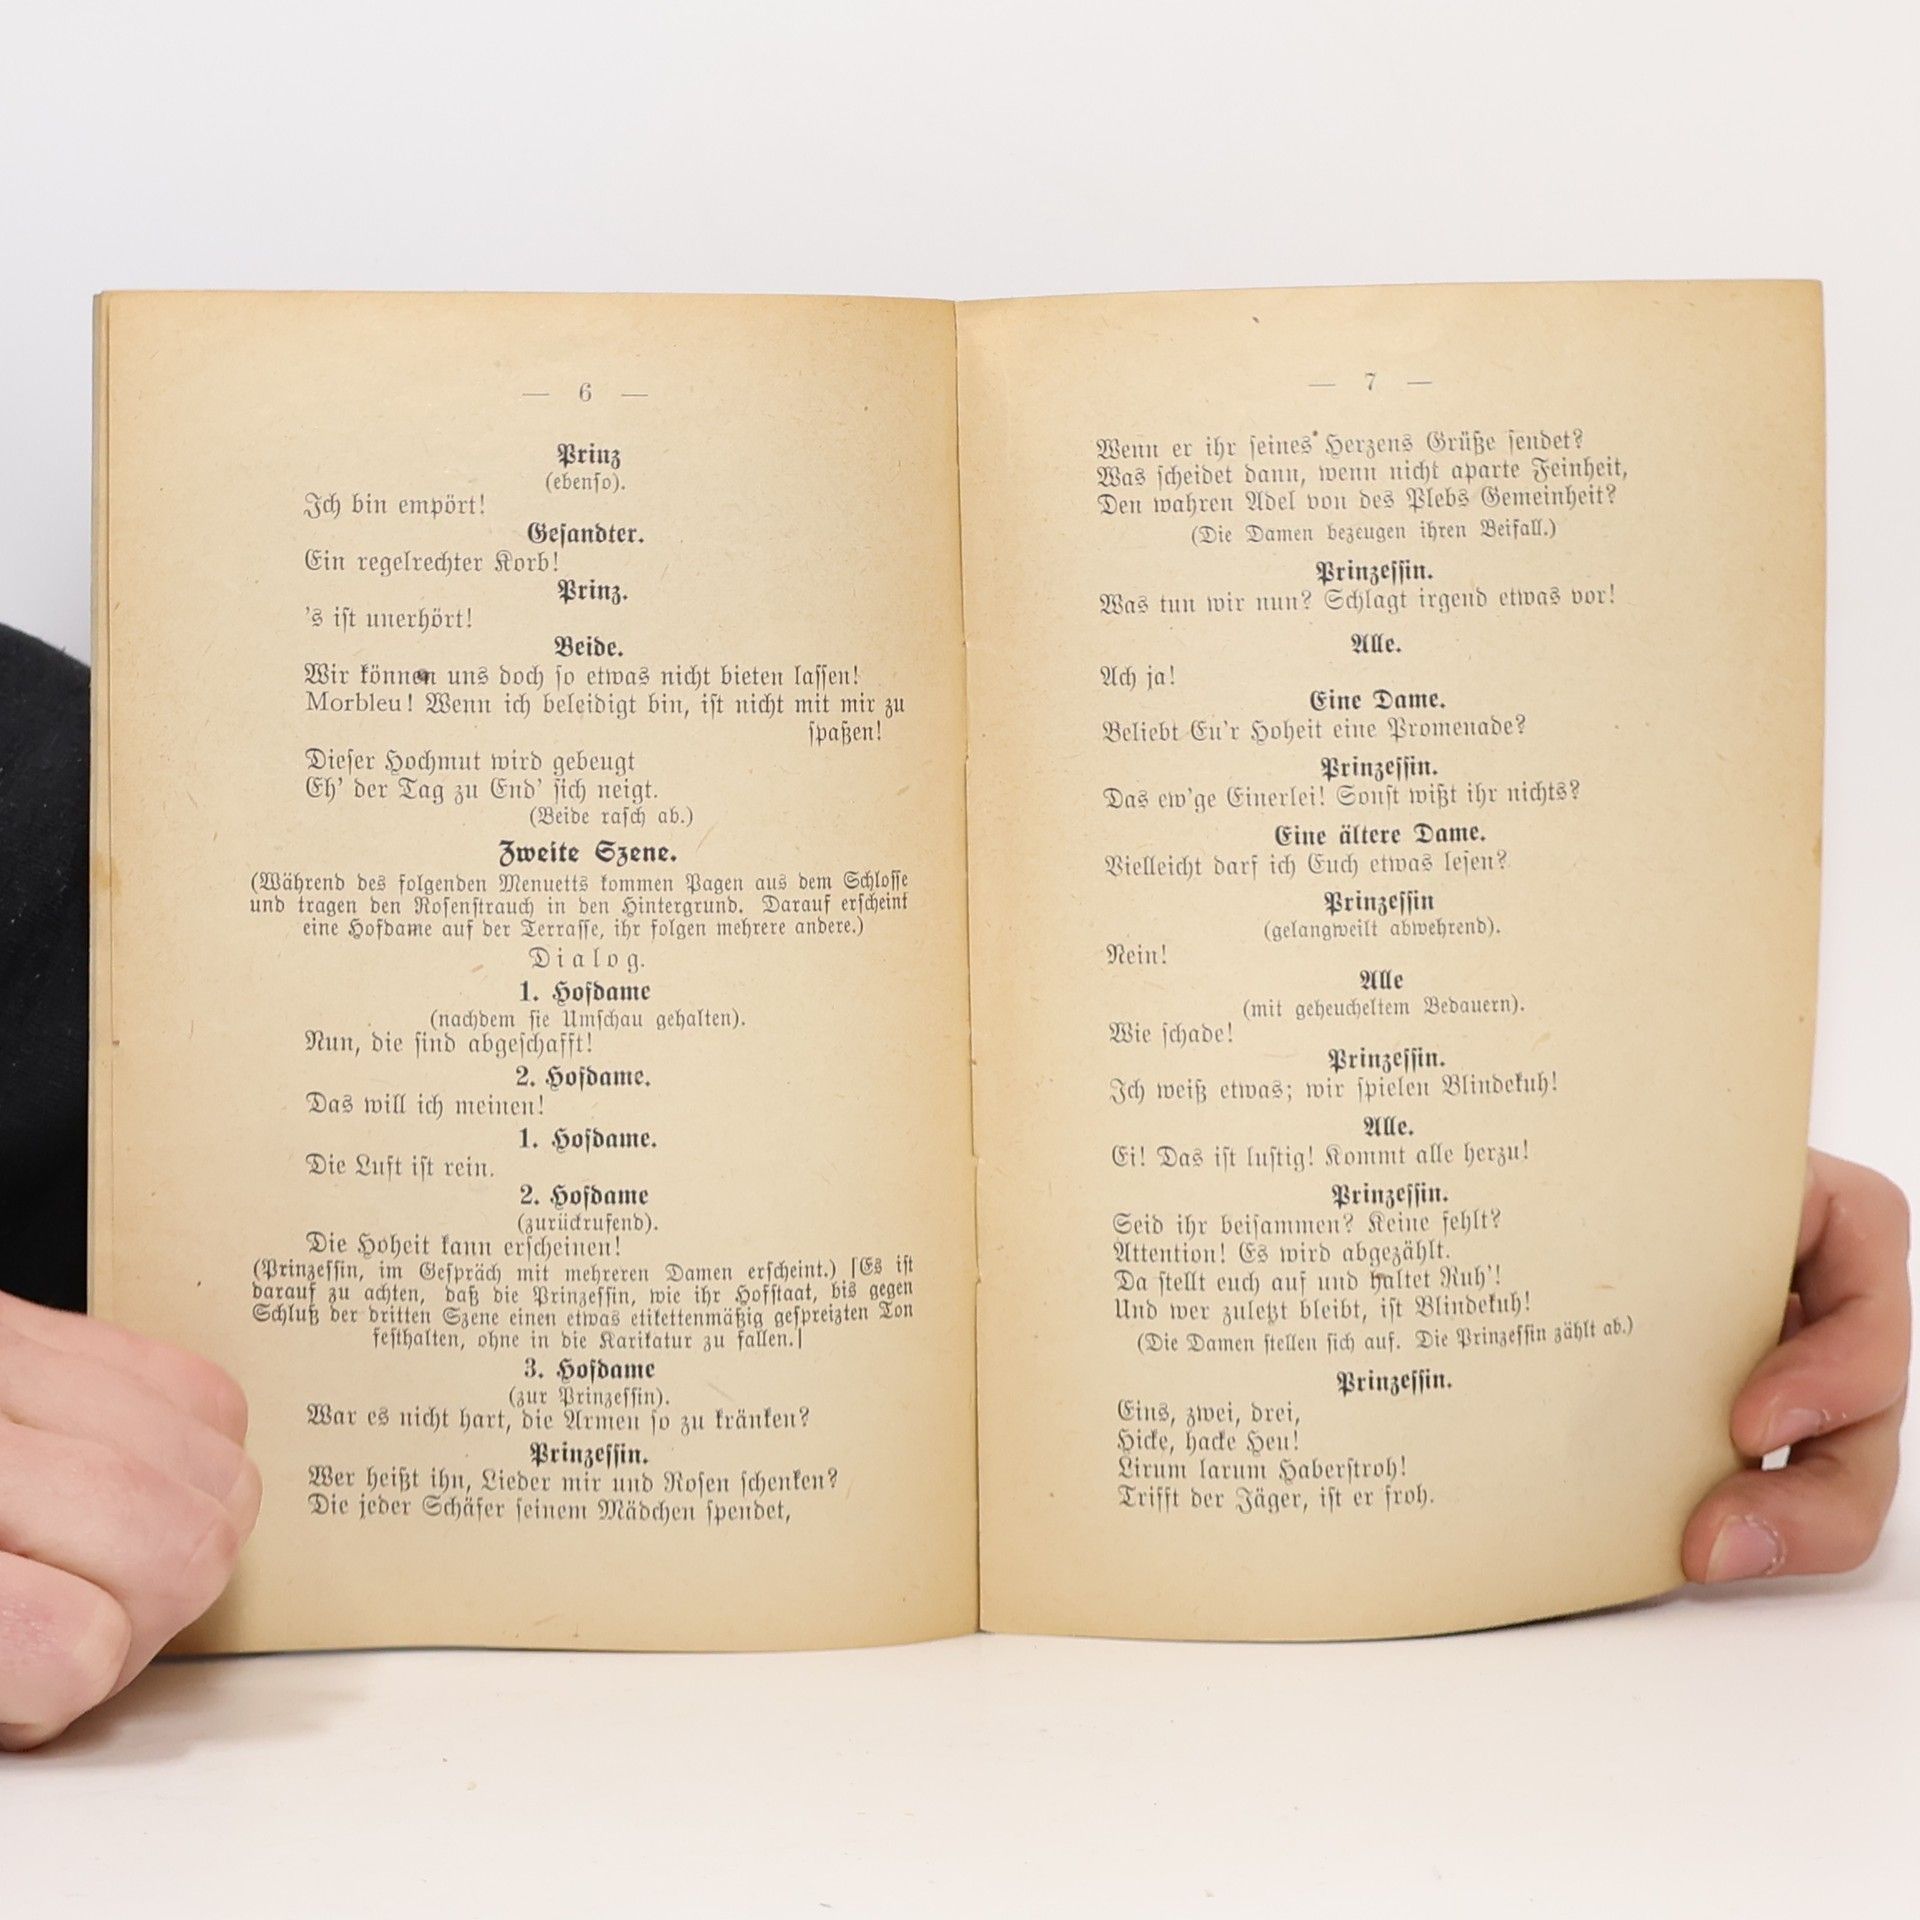 — 6 —
Prinz
(ebenſo).
Ich bin empört!
Geſandter.
Ein regelrechter Korb!
Prinz.
's iſt unerhört!
Beide.
Wir können uns doch ſo etwas nicht bieten laſſen!
Morbleu! Wenn ich beleidigt bin, iſt nicht mit mir zu
ſpaßen!
Dieſer Hochmut wird gebeugt
Eh' der Tag zu End' ſich neigt.
(Beide raſch ab.)
Zweite Szene.
(Während des folgenden Menuetts kommen Pagen aus dem Schloſſe
und tragen den Roſenſtrauch in den Hintergrund. Darauf erſcheint
eine Hofdame auf der Terraſſe, ihr folgen mehrere andere.)
Dialog.
1. Hofdame
(nachdem ſie Umſchau gehalten).
Nun, die ſind abgeſchafft!
2. Hofdame.
Das will ich meinen!
1. Hofdame.
Die Luft iſt rein.
2. Hofdame
(zurückrufend).
Die Hoheit kann erſcheinen!
(Prinzeſſin, im Geſpräch mit mehreren Damen erſcheint.) [Es iſt
darauf zu achten, daß die Prinzeſſin, wie ihr Hofſtaat, bis gegen
Schluß der dritten Szene einen etwas etikettenmäßig geſpreizten Ton
feſthalten, ohne in die Karikatur zu fallen.]
3. Hofdame
(zur Prinzeſſin).
War es nicht hart, die Armen ſo zu kränken?
Prinzeſſin.
Wer heißt ihn, Lieder mir und Roſen ſchenken?
Die jeder Schäfer ſeinem Mädchen ſpendet,
— 7 —
Wenn er ihr ſeines Herzens Grüße ſendet?
Was ſcheidet dann, wenn nicht aparte Feinheit,
Den wahren Adel von des Plebs Gemeinheit?
(Die Damen bezeugen ihren Beifall.)
Prinzeſſin.
Was tun wir nun? Schlagt irgend etwas vor!
Alle.
Ach ja!
Eine Dame.
Beliebt Eu'r Hoheit eine Promenade?
Prinzeſſin.
Das ew'ge Einerlei! Sonſt wißt ihr nichts?
Eine ältere Dame.
Vielleicht darf ich Euch etwas leſen?
Prinzeſſin
(gelangweilt abwehrend).
Nein!
Alle
(mit geheucheltem Bedauern).
Wie ſchade!
Prinzeſſin.
Ich weiß etwas; wir ſpielen Blindekuh!
Alle.
Ei! Das iſt luſtig! Kommt alle herzu!
Prinzeſſin.
Seid ihr beiſammen? Keine fehlt?
Attention! Es wird abgezählt.
Da ſtellt euch auf und haltet Ruh'!
Und wer zuletzt bleibt, iſt Blindekuh!
(Die Damen ſtellen ſich auf. Die Prinzeſſin zählt ab.)
Prinzeſſin.
Eins, zwei, drei,
Hicke, hacke Heu!
Lirum larum Haberſtroh!
Trifft der Jäger, iſt er froh.